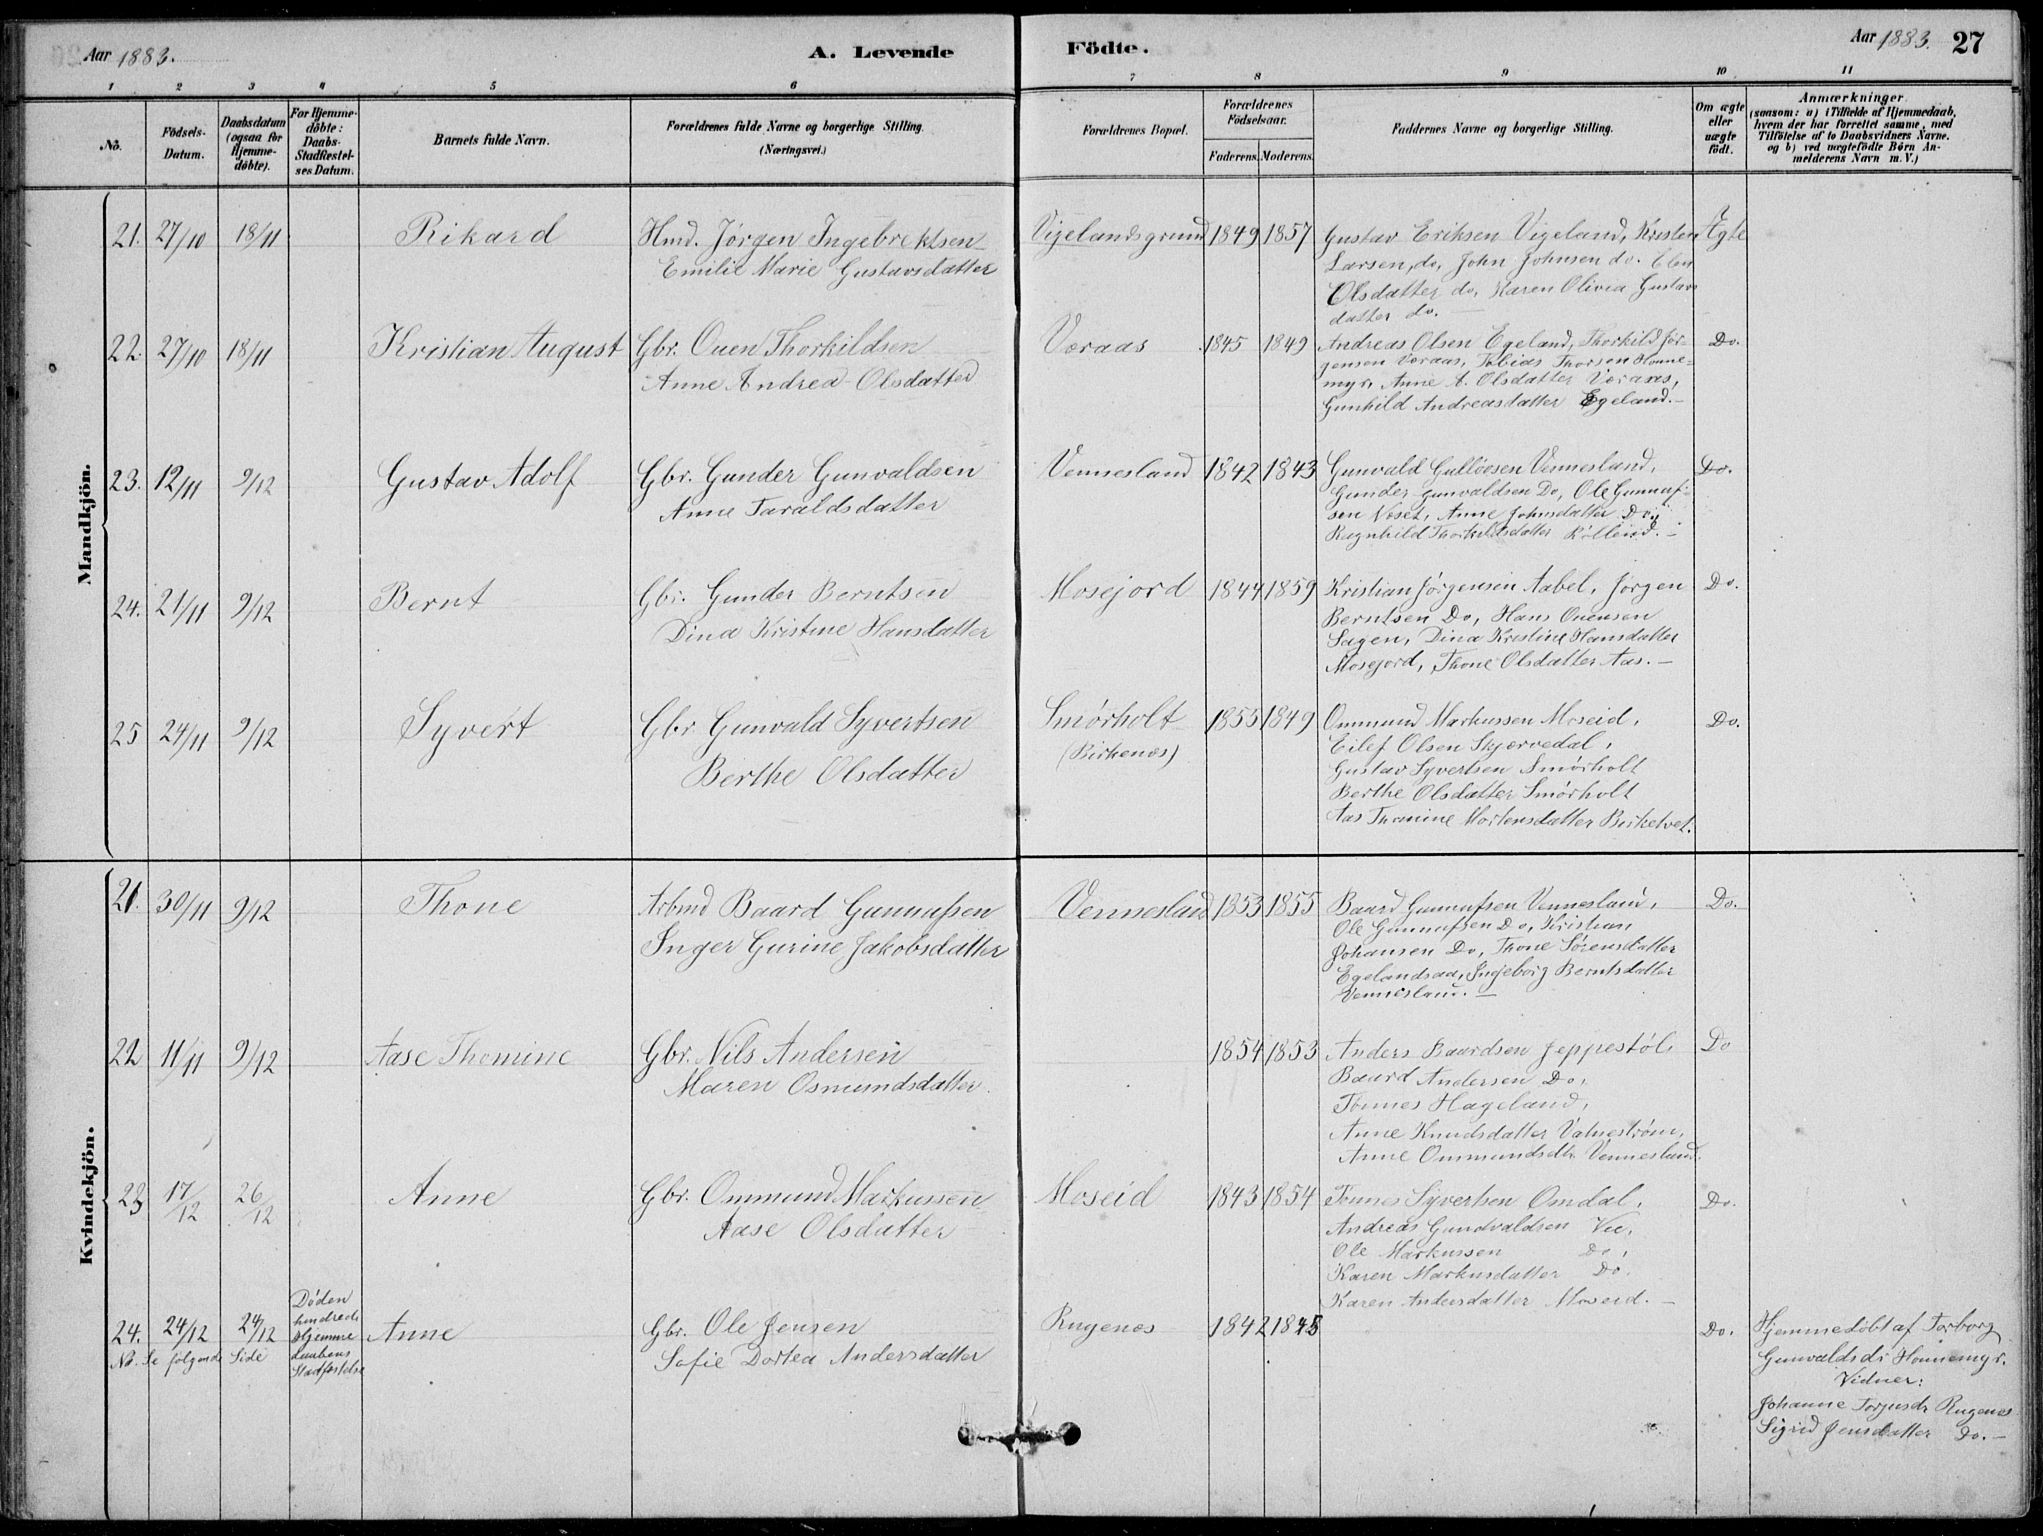 Aar 1883.
A. Levende Födte.
Aar 1883. 27
1 2 3 4 5 6 7 8 9 10 11
No.
Födsels-Datum.
Daabsdatum (ogsaa for Hjemme-döbte).
For Hjemme-döbte: Daabs-Stadfæstel-ses Datum.
Barnets fulde Navn.
Forældrenes fulde Navne og borgerlige Stilling. (Næringsvei.)
Forældrenes Bopæl.
Forældrenes Födselsaar.
Faderens. Moderens.
Faddernes Navne og borgerlige Stilling.
Om ægte eller uægte födt.
Anmærkninger.
(saasom: a) i Tilfælde af Hjemmedaab,
hvem der har forrettet samme, med
Tilföielse af to Daabsvidners Navne.
og b) ved uægtefödte Börn An-
melderens Navn m. V.)
Mandkjön.
21. 27/10 18/11 Rikard Hmd. Jørgen Ingebrektsen Vigelandsgrund 1849 1857 Gustav Eriksen Vigeland, Kristen Ægte
Emilie Marie Gustavsdatter Larsen, do, John Johnsen do. Elen
Olsdatter do, Karen Olivia Gustavs
datter do. —
22. 27/10 18/11 Kristian August Gbr. Ouen Thorkildsen Voraas 1845 1849 Andreas Olsen Egeland, Thorkild Jør- Do.
Anne Andrea Olsdatter gensen Voraas, Tobias Thorsen Honne-
myr, Anne A. Olsdatter Voraas,
Gunhild Andreasdatter Egeland. —
23. 12/11 9/12 Gustav Adolf Gbr. Gunder Gunvaldsen Vennesland 1842 1843 Gunvald Gulløvsen Vennesland, Do.
Anne Taraldsdatter Gunder Gunvaldsen Do, Ole Gunnuf-
sen Noset, Anne Johnsdatter Do,
Ragnhild Thorkildsdatter
24. 21/11 9/12 Bernt Gbr. Gunder Berntsen Mosejord 1844 1859 Kristian Jørgensen Aabel, Jørgen Do.
Dina Kristine Hansdatter Berntsen Do, Hans Ouensen
Sagen, Dina Kristine Hansdatter
Mosejord, Thone Olsdatter Aas. —
25 24/11 9/12 Syvert Gbr. Gunvald Syvertsen Smørholt (Birkenes) 1855 1849 Ommund Markussen Moseid, Do.
Berthe Olsdatter Eilef Olsen Skjærvedal,
Gustav Syvertsen Smørholt
Berthe Olsdatter Smørholt
Aas Thomine Mortensdatter Birketvet.
Kvindekjön.
21. 30/11 9/12 Thone Arbmd Baard Gunnufsen Vennesland 1853 1855 Baard Gunnufsen Vennesland, Do.
Inger Gurine Jakobsdatter Ole Gunnufsen Do, Kristian
Johansen Do, Thone Sørensdatter
Egelandsaa, Ingeborg Berntsdatter
Vennesland. —
22 11/11 9/12 Aase Thomine Gbr. Nils Andersen 1854 1853 Anders Baardsen Jeppestøl, Do
Maren Osmundsdatter. Baard Andersen Do,
Tønnes Hageland,
Anne Knudsdatter Vatnestrøm,
Anne Ommundsdtr Vennesland.
23 17/12 26/12 Anne Gbr. Ommund Markussen Moseid 1843 1854 Tønnes Syvertsen Omdal, Do.
Aase Olsdatter Andreas Gundvaldsen Vee,
Ole Markussen Do,
Karen Markusdatter Do.
Karen Andersdatter Moseid. —
24. 24/12 24/12 Døden hindrede Hjemme daabens Stadfæstelse Anne Gbr. Ole Jensen Rugenes 1842 1845 Do. Hjemmedøbt af Torborg
Sofie Dortea Andersdatter Gunvaldsdr Honnemyr.
No. Se følgende Side Vidner:
Johanne Torjusdr Rugenes
Sigrid Jensdatter Do. —